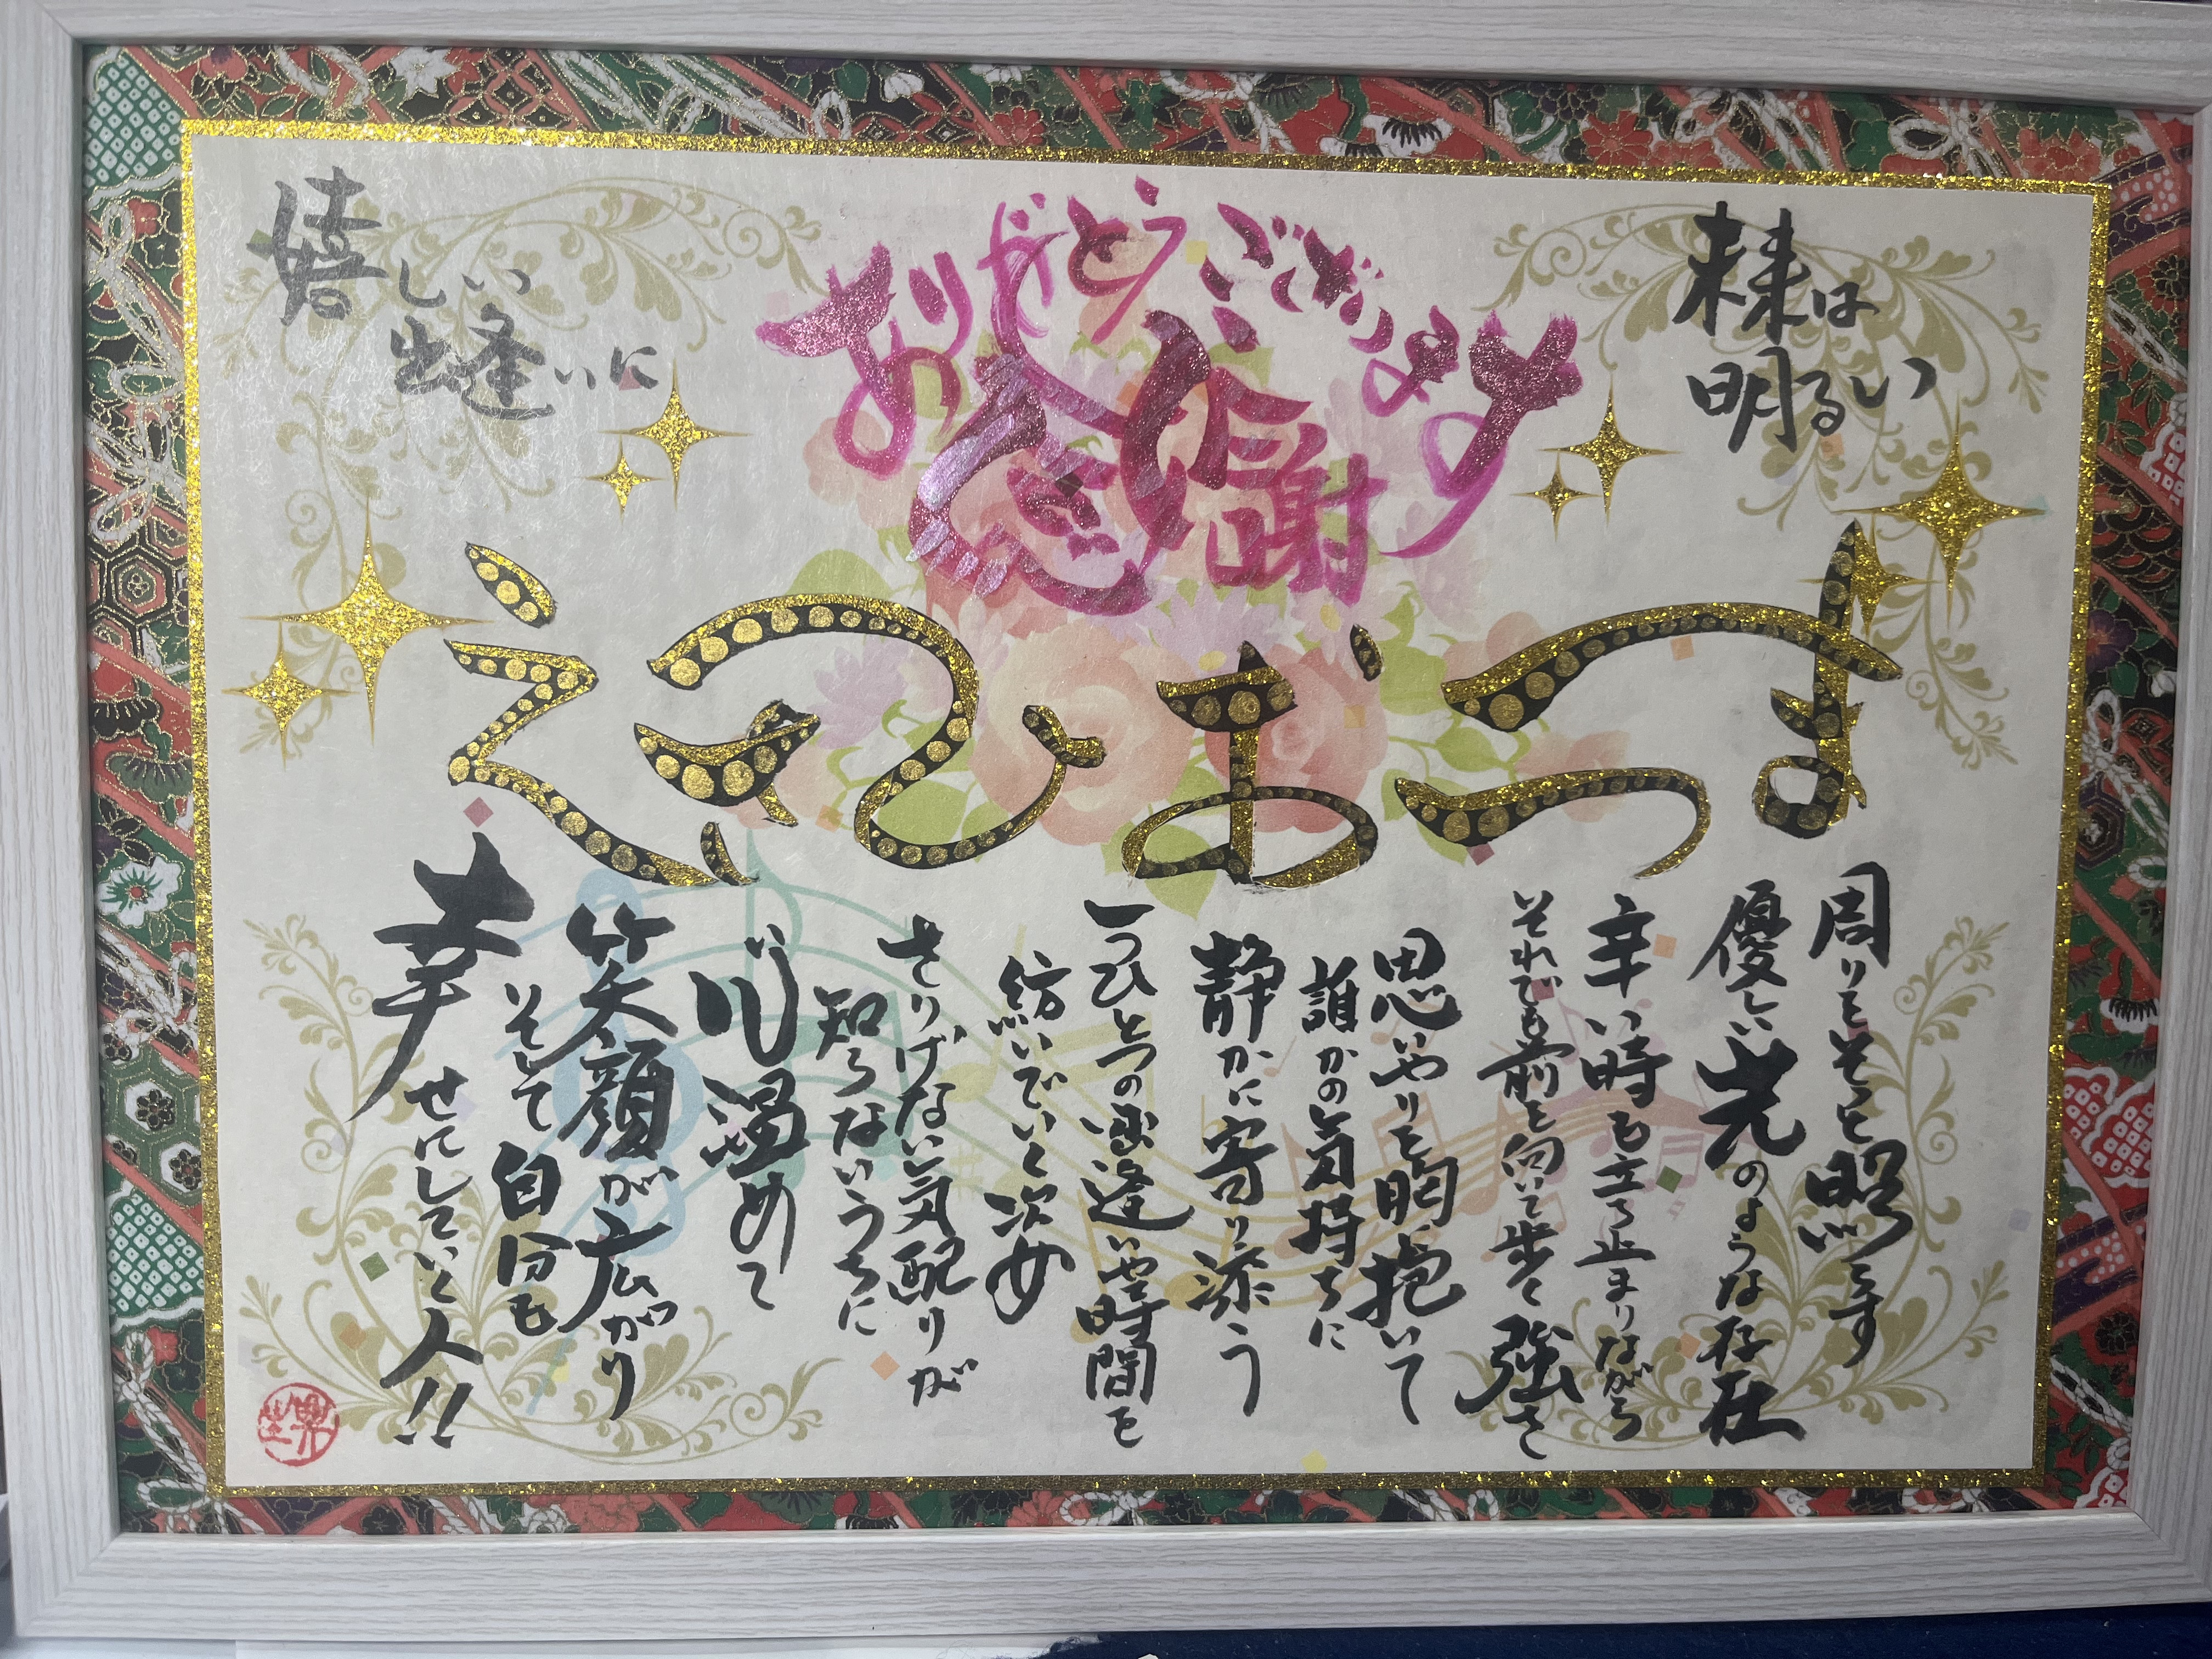 嬉しい
出逢いに
ありがとうございます
感謝
未来は
明るい
周りをそっと照らす
優しい光のような存在
辛い時も立ち止まりながら
それでも前を向いて歩く強さ
思いやりを胸に抱いて
誰かの気持ちに
静かに寄り添う
一つひとつの出逢いや時間を
紡いでいく次女
さりげない気配りが
知らないうちに
心温めて
笑顔が広がり
そして自分も
幸せにしていく人!!